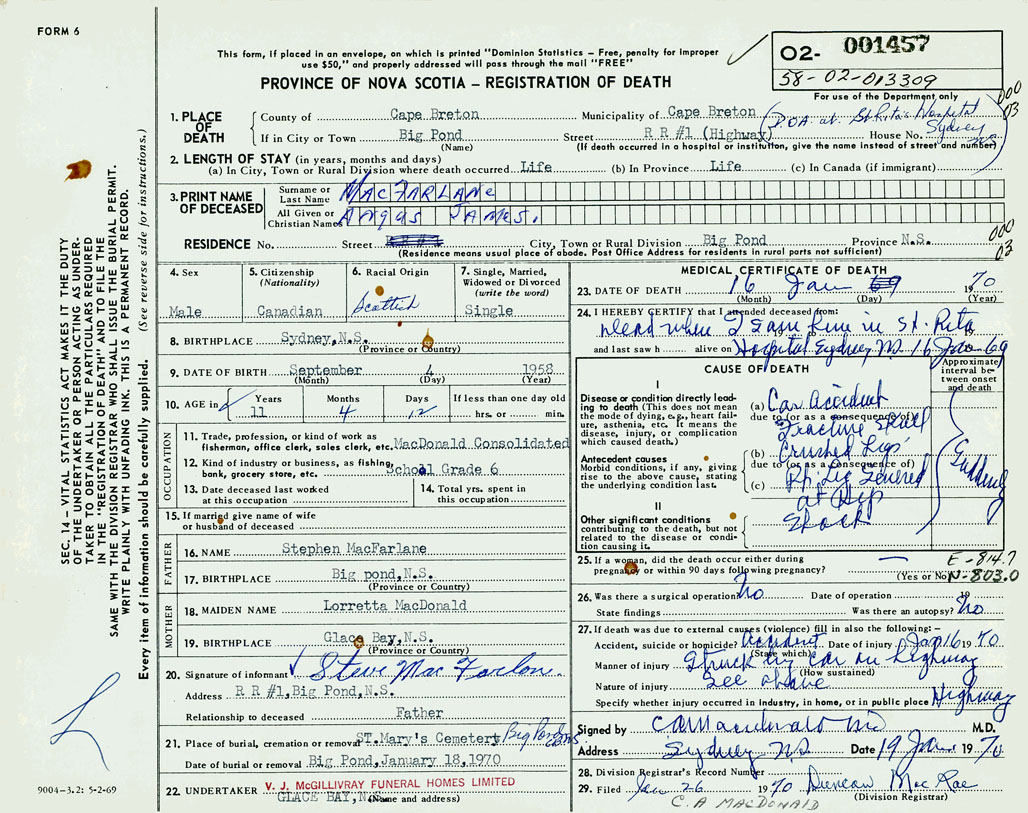 FORM 6
This form, if placed in an envelope, on which is printed "Dominion Statistics – Free, penalty for improper
use $50," and properly addressed will pass through the mail "FREE"
PROVINCE OF NOVA SCOTIA – REGISTRATION OF DEATH
02- 001457
58-02-013309
For use of the Department only
000
03
1. PLACE OF DEATH
County of Cape Breton Municipality of Cape Breton
If in City or Town Big Pond Street R R #1 (Highway) House No.
(Name) (If death occurred in a hospital or institution, give the name instead of street and number)
(DOA at St Rita's Hospital
Sydney
2. LENGTH OF STAY (in years, months and days)
(a) In City, Town or Rural Division where death occurred Life (b) In Province Life (c) In Canada (if immigrant)
3. PRINT NAME OF DECEASED
Surname or Last Name MACFARLANE
All Given or Christian Names ANGUS JAMES.
RESIDENCE No. Street R R #1 City, Town or Rural Division Big Pond Province N.S.
(Residence means usual place of abode. Post Office Address for residents in rural parts not sufficient)
000
03
4. Sex
Male
5. Citizenship
(Nationality)
Canadian
6. Racial Origin
Scottish
7. Single, Married,
Widowed or Divorced
(write the word)
Single
8. BIRTHPLACE Sydney,N.S.
(Province or Country)
9. DATE OF BIRTH September 4 1958
(Month) (Day) (Year)
10. AGE in Years Months Days If less than one day old
11 4 12 hrs. or min.
OCCUPATION
11. Trade, profession, or kind of work as
fisherman, office clerk, sales clerk, etc. MacDonald Consolidated
12. Kind of industry or business, as fishing,
bank, grocery store, etc. School Grade 6
13. Date deceased last worked
at this occupation
14. Total yrs. spent in
this occupation
15. If married give name of wife
or husband of deceased
FATHER
16. NAME Stephen MacFarlane
17. BIRTHPLACE Big pond,N.S.
(Province or Country)
MOTHER
18. MAIDEN NAME Lorretta MacDonald
19. BIRTHPLACE Glace Bay,N.S.
(Province or Country)
20. Signature of informant Steve Mac Farlon
Address R R #1,Big Pond,N.S.
Relationship to deceased Father
21. Place of burial, cremation or removal ST.Mary's Cemetery Big Pond
Date of burial or removal Big Pond,January 18,1970
22. UNDERTAKER V. J. McGILLIVRAY FUNERAL HOMES LIMITED
GLACE BAY,N.S.
(Name and address)
MEDICAL CERTIFICATE OF DEATH
23. DATE OF DEATH 16 Jan 69 1970
(Month) (Day) (Year)
24. I HEREBY CERTIFY that I attended deceased from:
Dead when I saw him in St. Rita
and last saw h alive on Hospital Sydney NS 16 Jan 69
CAUSE OF DEATH
Approximate
interval be-
tween onset
and death
I
Disease or condition directly lead-
ing to death (This does not mean
the mode of dying, e.g., heart fail-
ure, asthenia, etc. It means the
disease, injury, or complication
which caused death.)
(a) Car Accident
due to (or as a consequence of)
Fracture Skull
(b) Crushed Legs
due to (or as a consequence of)
(c) Rt. Leg Severed
at Hip
Shock
Suddenly
Antecedent causes
Morbid conditions, if any, giving
rise to the above cause, stating
the underlying condition last.
II
Other significant conditions
contributing to the death, but not
related to the disease or condi-
tion causing it.
25. If a woman, did the death occur either during
pregnancy or within 90 days following pregnancy? —
(Yes or No)
E-814.7
N-803.0
26. Was there a surgical operation? No Date of operation 19
State findings Was there an autopsy? No
27. If death was due to external causes (violence) fill in also the following:–
Accident, suicide or homicide? Accident Date of injury Jan 16 1970
(State which)
Manner of injury Struck by car on highway
(How sustained)
Nature of injury See above
Specify whether injury occurred in industry, in home, or in public place Highway
Signed by C.A. Macdonald MD M.D.
Address Sydney NS Date 19 Jan 1970
28. Division Registrar's Record Number
29. Filed Jan 26 1970 Duncan MacRae
(Division Registrar)
C. A MACDONALD
SEC. 14 – VITAL STATISTICS ACT MAKES IT THE DUTY
OF THE UNDERTAKER OR PERSON ACTING AS UNDER-
TAKER TO OBTAIN ALL THE PARTICULARS REQUIRED
IN THE "REGISTRATION OF DEATH" AND TO FILE THE
SAME WITH THE DIVISION REGISTRAR WHO SHALL ISSUE THE BURIAL PERMIT.
WRITE PLAINLY WITH UNFADING INK. THIS IS A PERMANENT RECORD.
Every item of information should be carefully supplied. (See reverse side for instructions.)
9004-3.2: 5-2-69